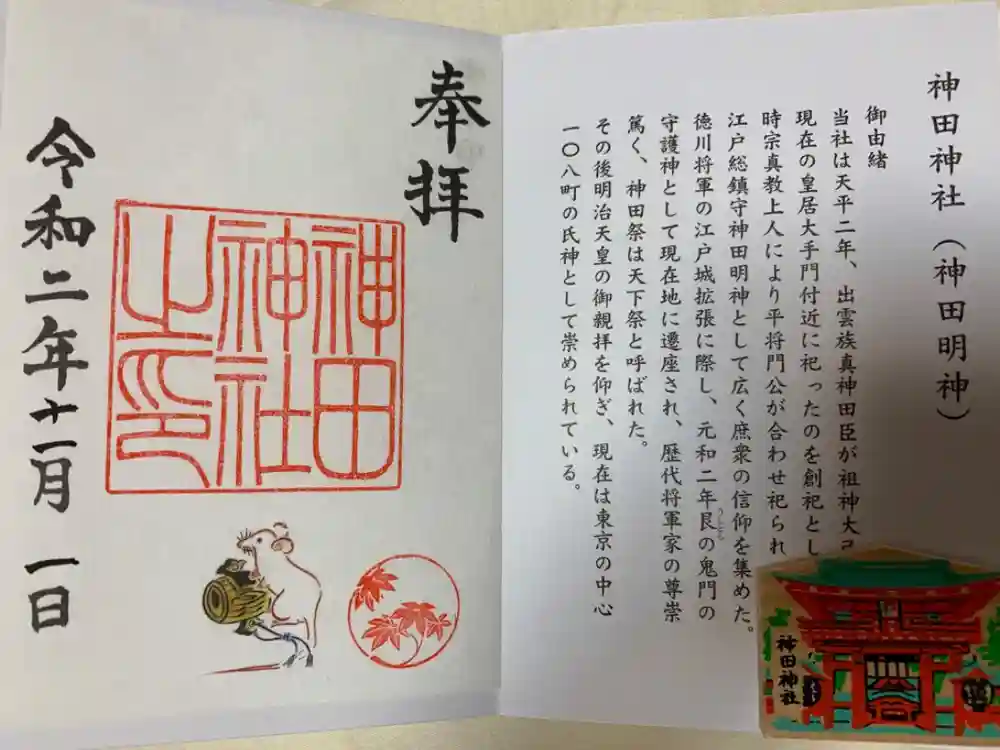 神田神社（神田明神）
御由緒
当社は天平二年、出雲族真神田臣が祖神大己
現在の皇居大手門付近に祀ったのを創祀とし
時宗真教上人により平将門公が合わせ祀られ
江戸総鎮守神田明神として広く庶衆の信仰を集めた。
徳川将軍の江戸城拡張に際し、元和二年艮の鬼門の
うしとら
守護神として現在地に遷座され、歴代将軍家の尊崇
篤く、神田祭は天下祭と呼ばれた。
その後明治天皇の御親拝を仰ぎ、現在は東京の中心
一〇八町の氏神として崇められている。
神田神社
奉拝
神田
神社
之印
令和二年十一月 一日